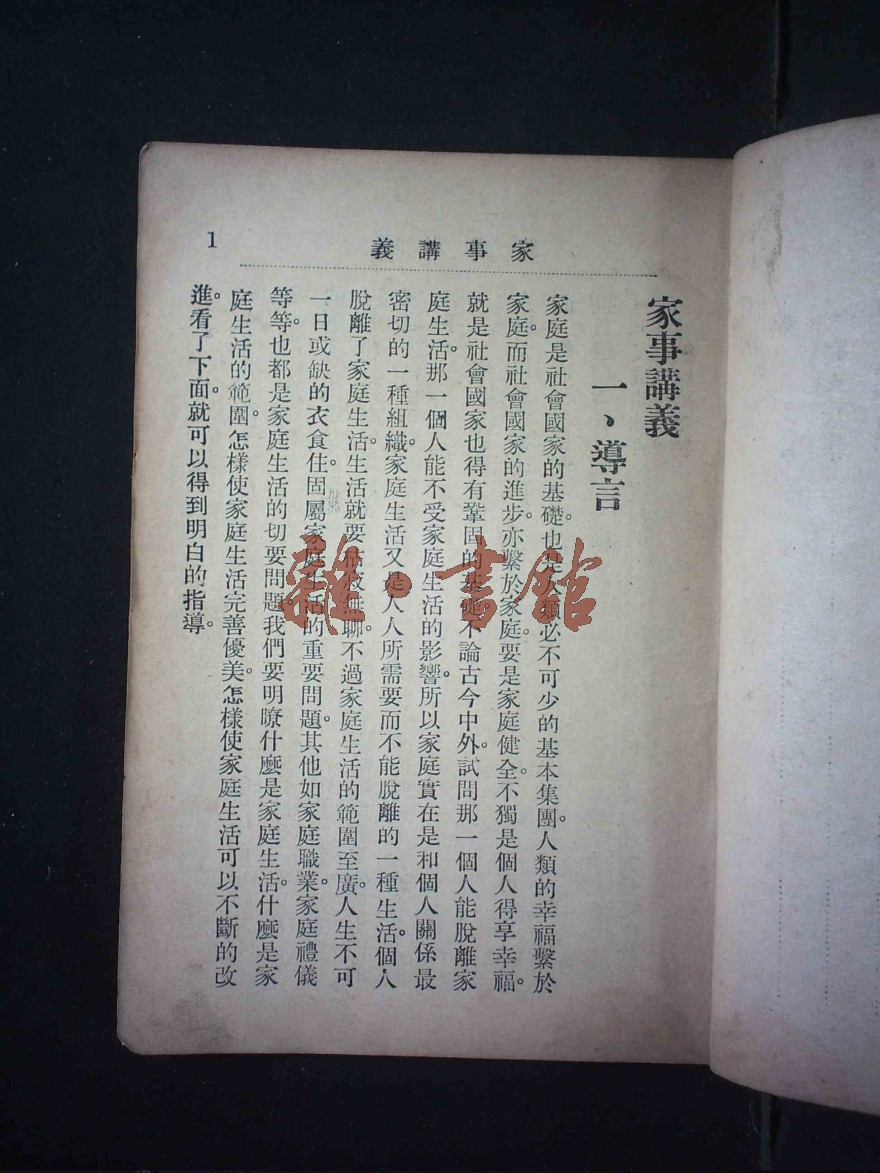 1
家事講義
家事講義
一、導言
家庭是社會國家的基礎。也是人類必不可少的基本集團。人類的幸福繫於
家庭。而社會國家的進步。亦繫於家庭。要是家庭健全。不獨是個人得享幸福。
就是社會國家也得有鞏固的基礎不論古今中外。試問那一個人能脫離家
庭生活。那一個人能不受家庭生活的影響。所以家庭實在是和個人關係最
密切的一種組織。家庭生活又是人人所需要而不能脫離的一種生活。個人
脫離了家庭生活。生活就要枯寂無聊。不過家庭生活的範圍至廣。人生不可
一日或缺的衣食住。固屬家庭生活的重要問題。其他如家庭職業。家庭禮儀
等等。也都是家庭生活的切要問題。我們要明瞭什麼是家庭生活。什麼是家
庭生活的範圍。怎樣使家庭生活完善優美。怎樣使家庭生活可以不斷的改
進。看了下面。就可以得到明白的指導。
雜·書館